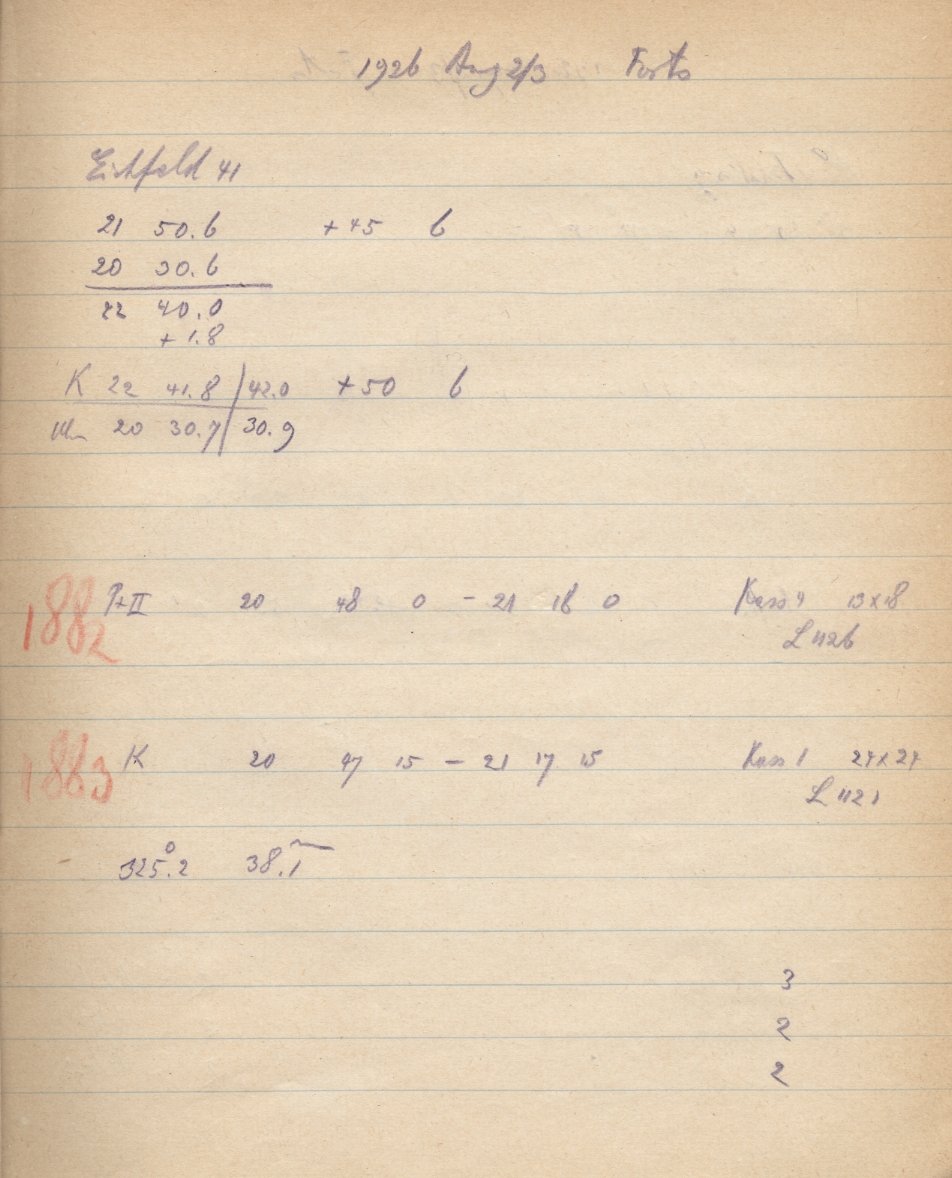 1926 Aug 2/3 Forts
Eichfeld 41
21 50.6 +45 6
20 50.6
22 40.0
+ 1.8
K 22 41.8 / 42.0 +50 6
20 30.7 / 30.9
1882 P+II 20 48 0 - 21 18 0 Kass 4 13x18
L 426
1883 K 20 47 15 - 21 17 15 Kass 1 27x27
L 421
325°.2 38.1
3
2
2